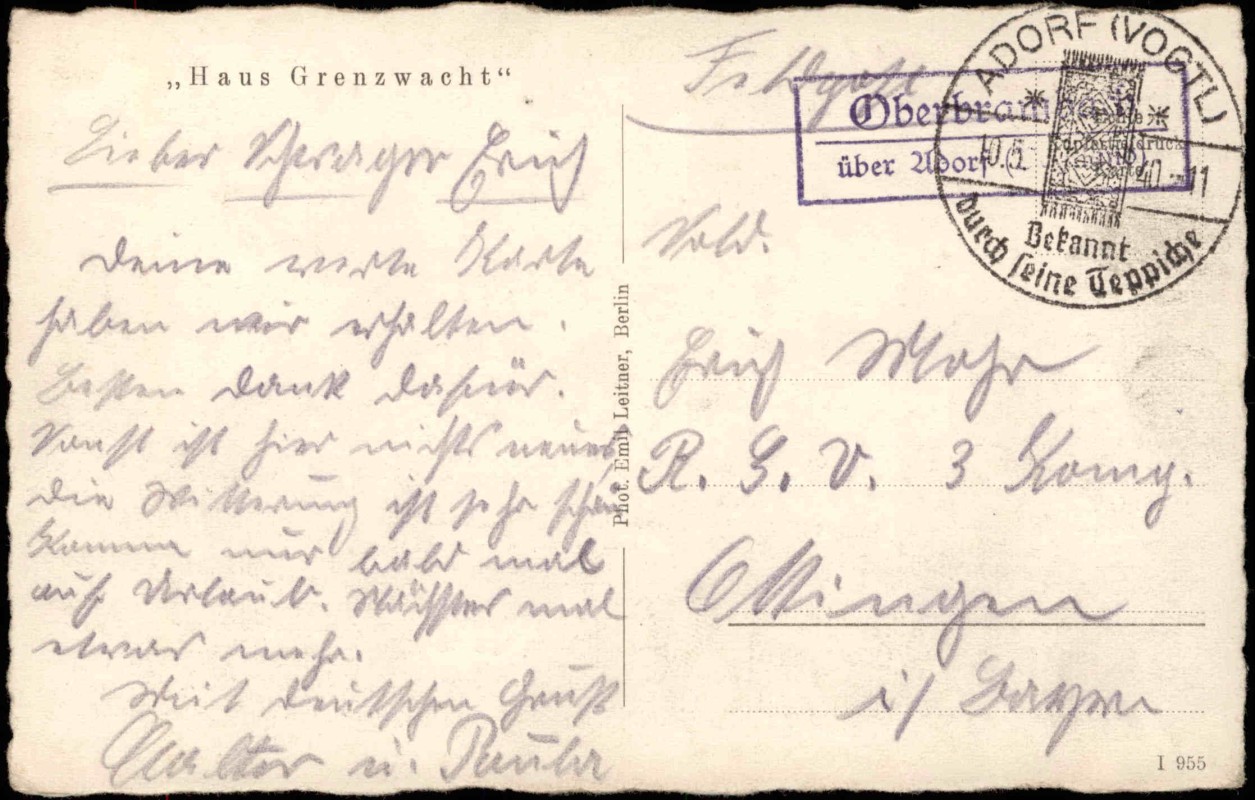 „Haus Grenzwacht“
Lieber Schwager Erich
Deine werte Karte
haben wir erhalten.
Besten Dank dafür.
Sonst ist hier nichts neues
Die Witterung ist sehr schön
Komme nur bald mal
auf Urlaub. Nächstes mal
etwas mehr.
Mit deutschen Gruß
Walter u. Paula
Phot. Emil Leitner, Berlin
Feldpost
Oberbram
über Adorf (
ADORF (VOGTL)
40-11
Bekannt
durch seine Teppiche
Echte
Kupfertiefdruck
Karte
Sold.
Erich Mohr
R. S. V. 3 Komp.
Ottingen
i/ Bayern
I 955